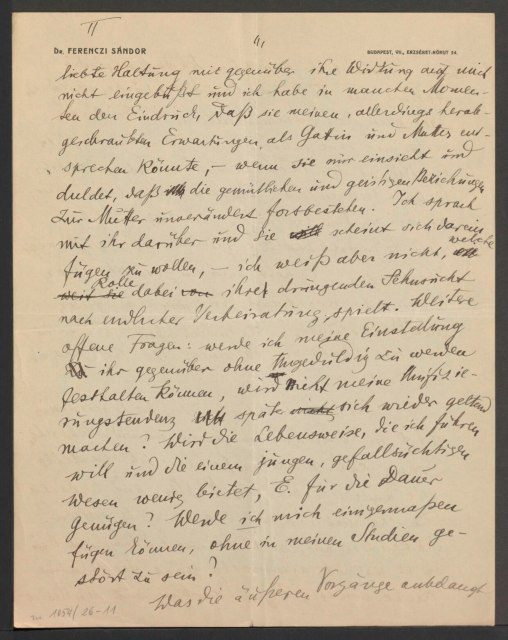 II
4,
Dr. FERENCZI SÁNDOR
BUDAPEST, VII., ERZSÉBET-KÖRUT 54.
liebte Haltung mir gegenüber ihre Wirkung auf mich
nicht eingebüßt und ich habe in manchen Momen-
ten den Eindruck, daß sie meinen, allerdings herab-
geschraubten Erwartungen, als Gatin und Mutter ent-
sprechen könnte, – wenn sie nur einsieht und
duldet, daß die gemütlichen und geistigen Beziehungen
zur Mutter unverändert fortbestehen. Ich sprach
mit ihr darüber und sie scheint sich darein
fügen zu wollen, – ich weiß aber nicht, welche
Rolle
weit sie dabei von ihrer dringenden Sehnsucht
nach endlicher Verheiratung spielt. Weitere
offene Fragen: werde ich meine Einstellung
ihr gegenüber ohne Ungeduldig zu werden
festhalten können, wird nicht meine
rungstendenz später nicht sich wieder geltend
machen? Wird die Lebensweise, die ich führen
will und die einem jungen, gefallsüchtigen
Wesen wenig bietet, E. für die Dauer
genügen? Werde ich mich einigermaßen
fügen können, ohne in meinen Studien ge-
stört zu sein?
Was die äußeren Vorgänge anbelangt
1054/26-11